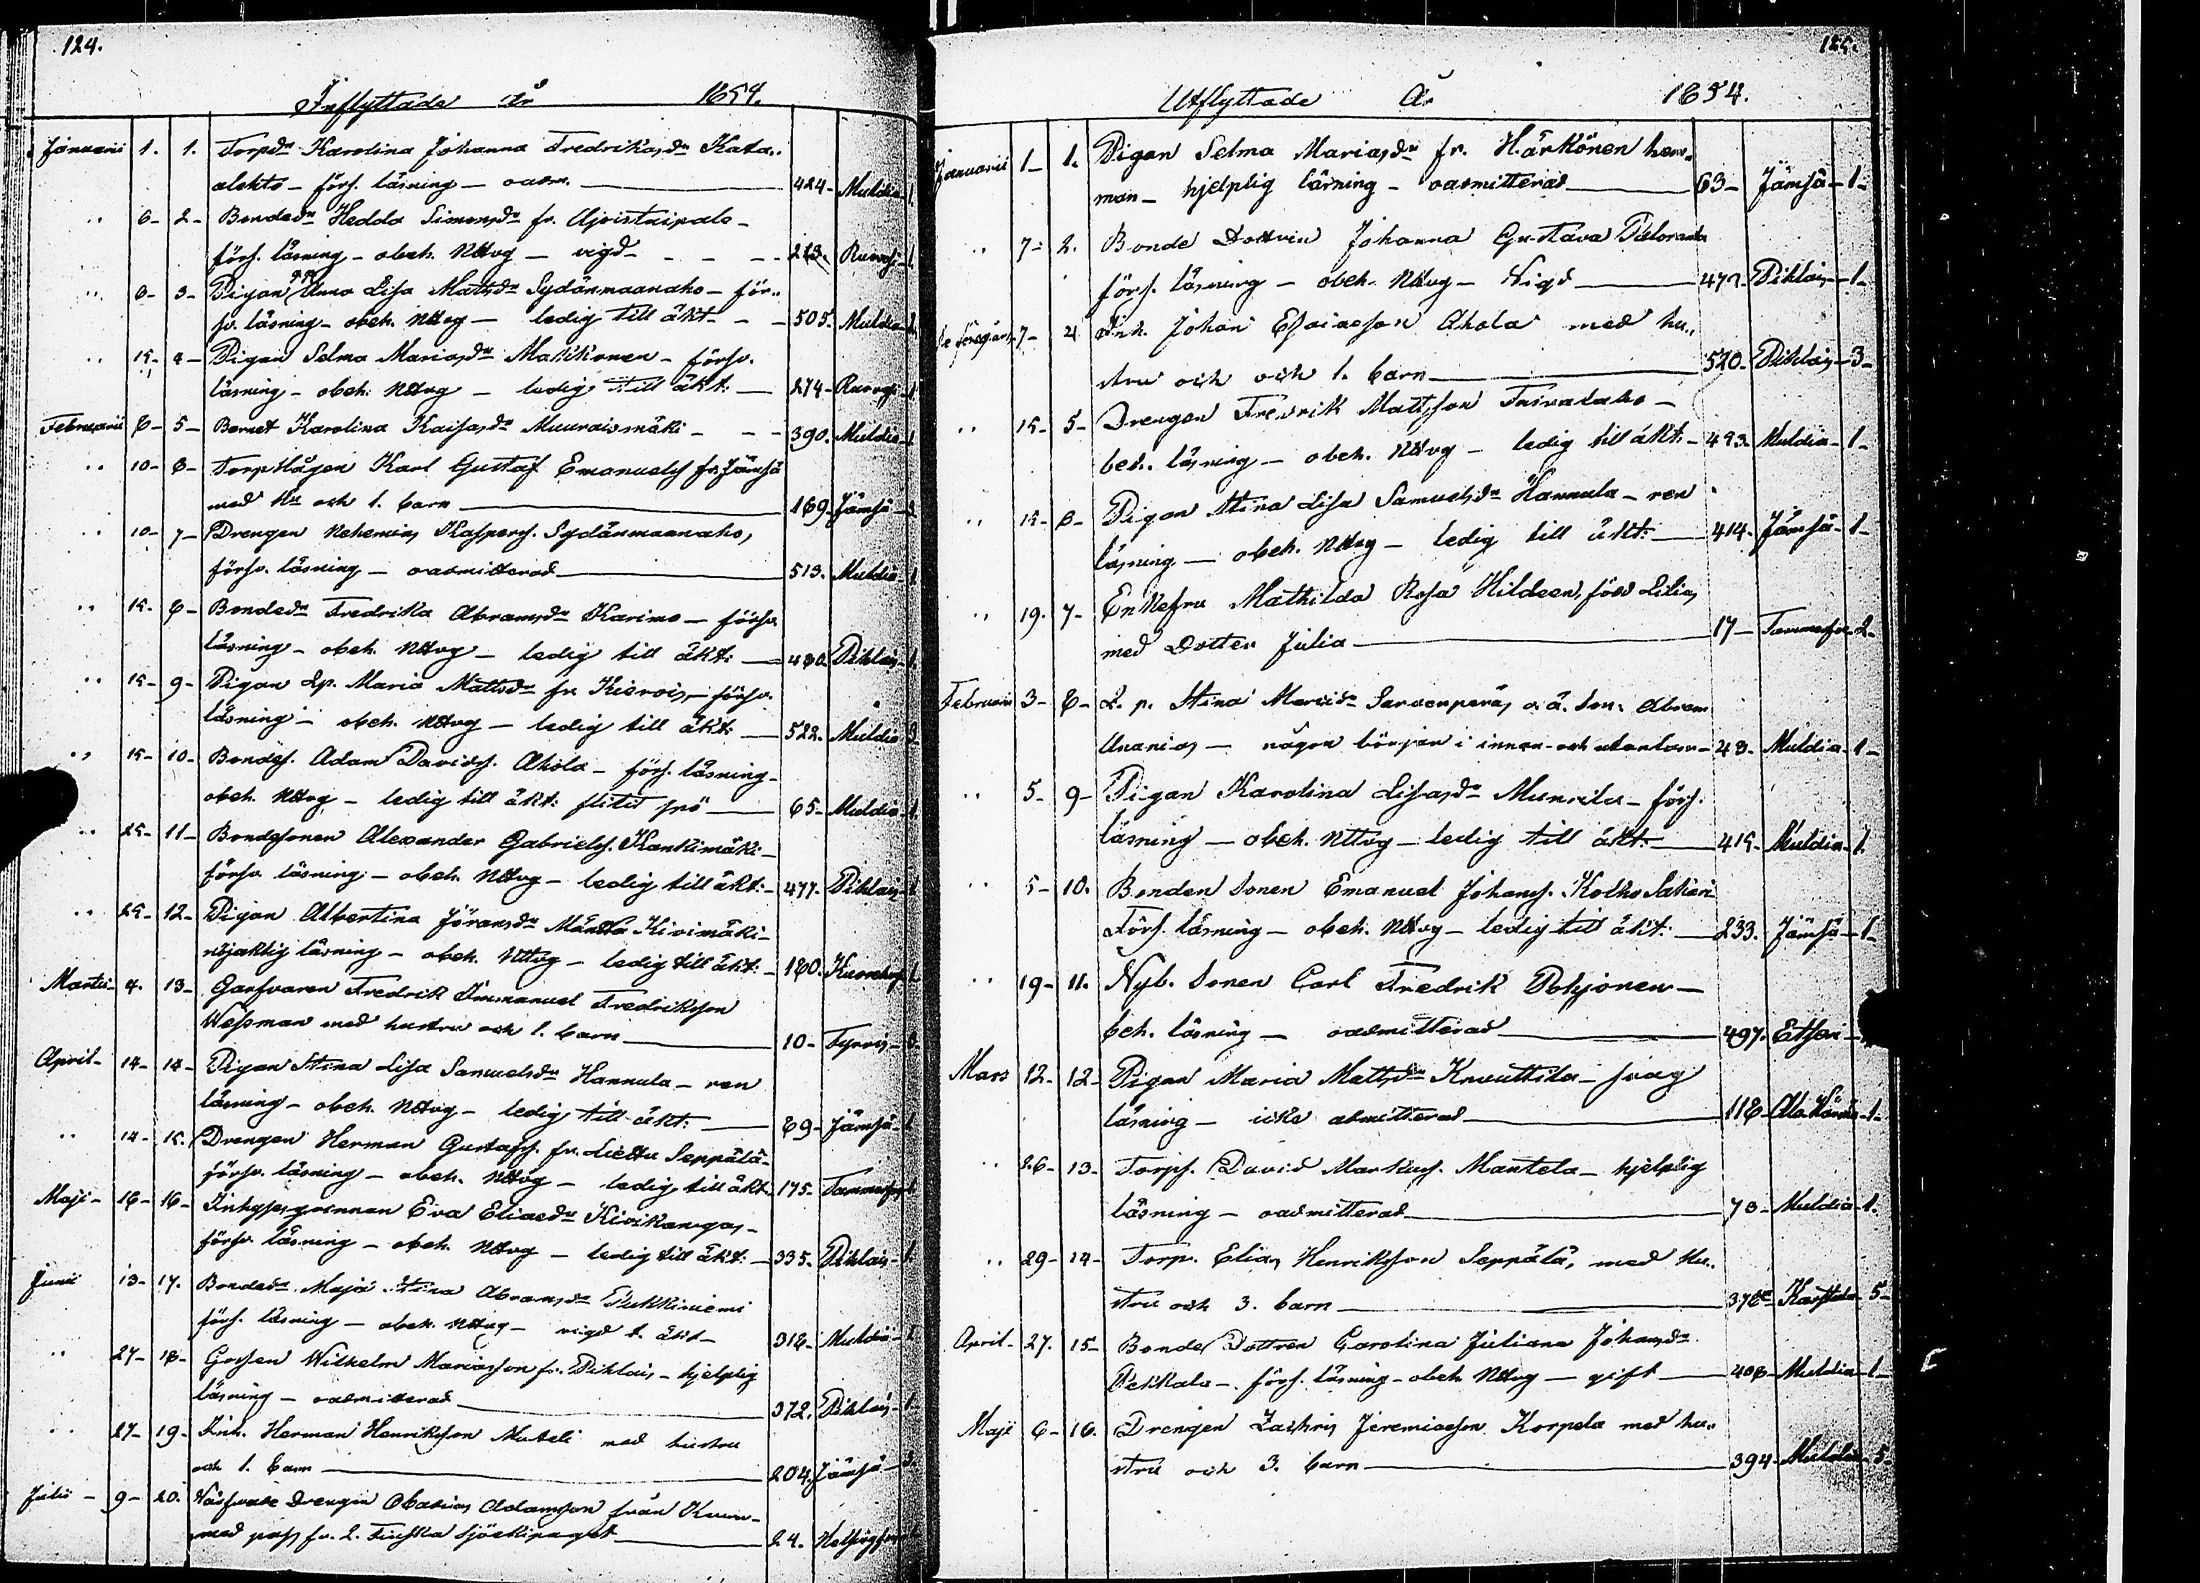 124.
Inflyttade År 1854.
Januarii 1. 1. Torpdr Karolina Johanna Fredriksdr Kata-
alokto - förs. läsning - oadm. 424 - Muldia - 1
" 6 - 2 - Bondedr Hedda Simonsdr fr.
förs. läsning - obeh. Nttvg - vigd - 213. Ruovesi - 1.
" 6 - 3 - Pigan Anna Lisa Mattsdr Sydänmaanaho - för-
sv. läsning - obeh. Nttvg - ledig till äkt. - 505. Muldia
" 15 - 4 - Pigan Selma Mariasdr Makkonen - försv.
läsning - obeh. Nttvg - ledig till äkt. 274 - Ruovesi - 1
Februarii 6 - 5 - Barnet Karolina Kaisasdr Muuraismäki - 390. Muldia - 1
" 10 - 6 - Karl Gustaf Emanuels. fr. Jämsä
med Hu och 1. barn 169 - Jämsä - 3
" 10 - 7 - Drengen Nehemias Kaspers. Sydänmaanaho,
försv. läsning - oadmitterad 513. Muldia - 1
" 15. 8 - Bondedr Fredrika Abramsdr Karimo - försv.
läsning - obeh. Nttvg - ledig till äkt: 480. Pihlais - 1.
" 15 - 9 - Pigan Lp. Maria Mattsdr fr. - försv.
läsning - obeh. Nttvg - ledig till äkt: 522. Muldia
" 15 - 10 - Bondes. Adam Davids. Ahola - förs. läsning -
obeh. Nttvg - ledig till äkt: 65 - Muldia - 1.
" 25 - 11 - Bondesonen Alexander Gabriels. Kankimäki -
försv. läsning - obeh. Nttvg - ledig till äkt: - 477. Pihlais - 1
" 25 - 12 - Pigan Albertina Göransdr Mänttä Kivimäki -
nöjaktig läsning - obeh. Nttvg - ledig till äkt: - 180. - 1
Martii - 4. 13 - Garfvaren Fredrik Emmanuel Fredriksson
Wessman med hustru och 1. barn 10 - Tyrvis - 3
April - 14 - 14 - Pigan Stina Lisa Samuelsdr Hannula - ren
läsning - obeh. Nttvg - ledig till äkt. 89 - Jämsä - 1
" 14 - 15. Drengen Herman Gustafs. fr. Seppälä -
försv. läsning - obeh. Nttvg - ledig till äkt. 175 - Tammerfors
Maji - 16 - 16 - Inhysesqvinnan Eva Eliaedr Kivikangas -
försv. läsning - obeh. Nttvg - ledig till äkt. - 335. Pihlais - 1.
Junii 13 - 17. Bondedr Maja Stina Abramsdr Pukkiniemi
förs. läsning - obeh. Nttvg - vigd t. äkt - 318 - Muldia - 1
" 27 - 18 - Gossen Wilhelm Mariasson fr. Pihlais - hjelplig
läsning - oadmitterad 372. Pihlais - 1 -
" 27 - 19 - Inh. Herman Henriksson Muteli med hustru
och 1. barn 204. Jämsä - 3.
Julii - 9 - 20. Drengen Obadias Adamsson från
med pass fr. 2. Finska Sjöekipaget 24. Helsingfors

125.
Utflyttade År 1854.
Januarii 1 - 1. Pigan Selma Mariasdr fr. Härkönen hem-
man - hjelplig läsning - oadmitterad 63 - Jämsä - 1 -
" 7 - 2. Bonde Dottern Johanna Gustava
förs. läsning - obeh. Nttvg - Vigd 472 - Pihlais - 1 -
7 - 4 Inh. Johan Esaiasson Ahola med hu-
stru och och 1. barn 520 - Pihlais - 3 -
" 15 - 5 - Drengen Fredrik Mattsson Taivalaho -
läsning - obeh. Nttvg - ledig till äkt. - 493. Muldia - 1 -
" 15 - 6 - Pigan Stina Lisa Samuelsdr Hannula - ren
läsning - obeh. Nttvg - ledig till äkt: 414. Jämsä - 1 -
" 19. 7 - Enkefru Mathilda Rosa Hildeen, född Lilius
med Dotter Julia 17 - Tammerfors - 2 -
Februarii 3 - 8 - L. p. Stina Mariedr Sarvenperä, o. ä. son Abram
Ananias - någon början i innan- och utanläsn - 43 - Muldia - 1 -
" 5 - 9 - Pigan Karolina Lisasdr Munnila - förs.
läsning - obeh. Nttvg - ledig till äkt: 415 - Muldia - 1.
" 5 - 10. Bonden Sonen Emanuel Johans. Kolho
Förs. läsning - obeh. Nttvg - ledig till äkt: 233. Jämsä - 1 -
" 19 - 11. Nyb. Sonen Carl Fredrik Pohjonen -
beh. läsning - oadmitterad 497. Etseri -
Mars 12 - 12 - Pigan Maria Mattsdr Knuuttila - svag
läsning - icke admitterad 118 - - 1 -
" 26 - 13 - Torps. David Markus. Mantela - hjelplig
läsning - oadmitterad 78 - Muldia - 1.
" 29 - 14 - Torp. Elias Henriksson Seppälä, med hu-
stru och 3. barn Karstula - 5 -
April - 27. 15 - Bonde Dottren Carolina Juliana Johansdr
Pekkala - förs. läsning - obeh. Nttvg - gift 408 - Muldia - 1 -
Maji 6 - 16. Drengen Zachris Jeremiasson Korpela med hu-
stru och 3. barn 394 - Muldia - 5 -